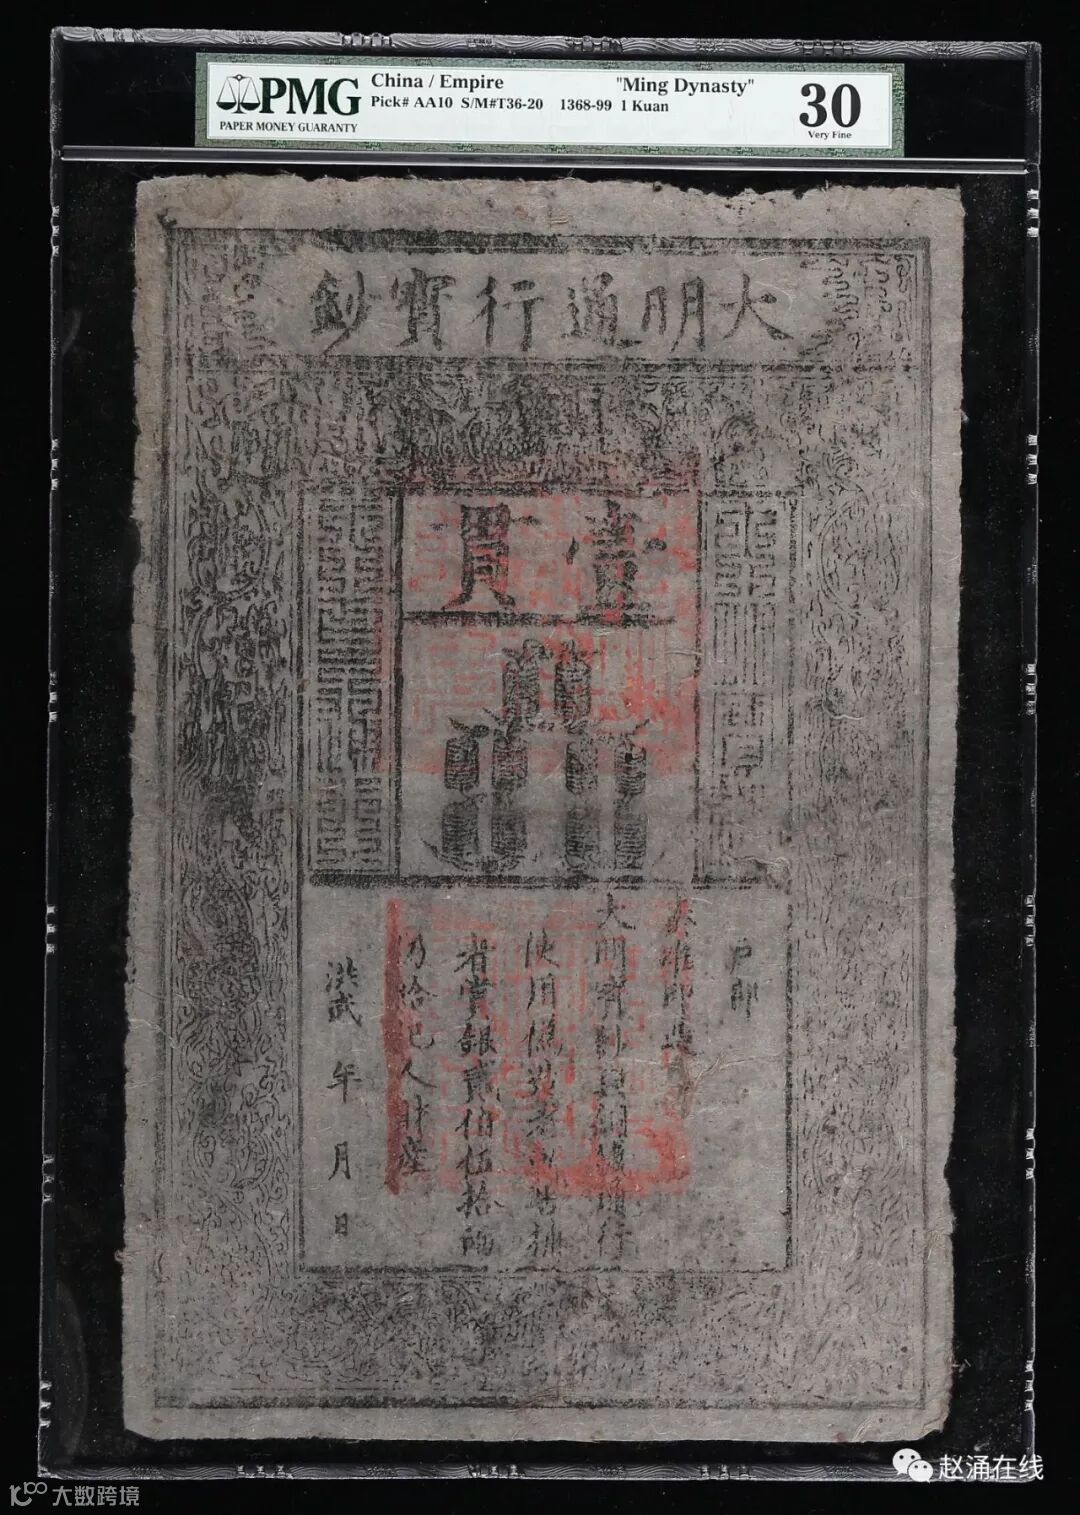 PMG
PAPER MONEY GUARANTY
China / Empire "Ming Dynasty"
Pick# AA10 S/M#T36-20 1368-99 1 Kuan
30
Very Fine
大明通行寶鈔
壹貫
戶部
奏准印造
大明寶鈔與銅錢通行
使用偽造者
者賞銀貳伯伍拾兩
仍給犯人財產
洪武 年 月 日
赵涌在线
大数跨境